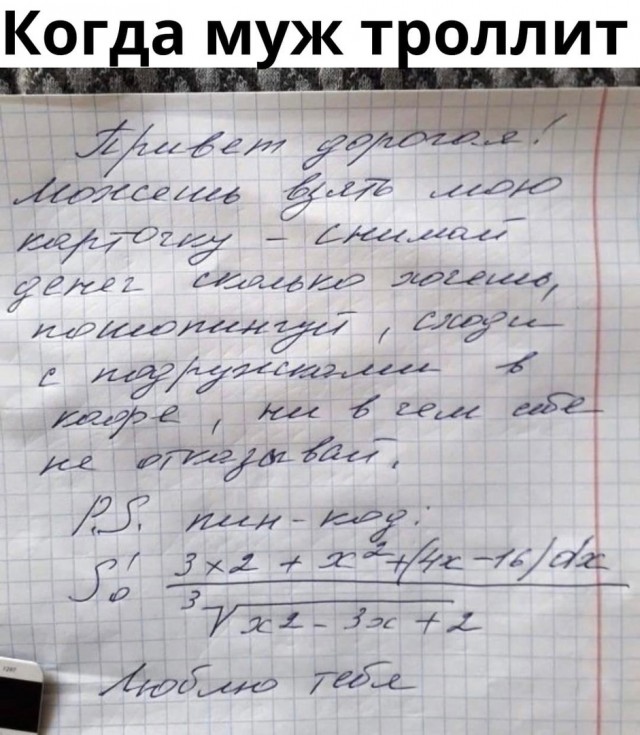 Когда муж троллит
Привет дорогая!
Можешь взять мою
карточку - снимай
денег сколько хочешь,
пошопингуй, сходи
с подружками в
кафе, ни в чем себе
не отказывай.
P.S. пин-код:
∫₀¹ 3x2 + x² + (4x - 16) dx
³√x2 - 3x + 2
Люблю тебя